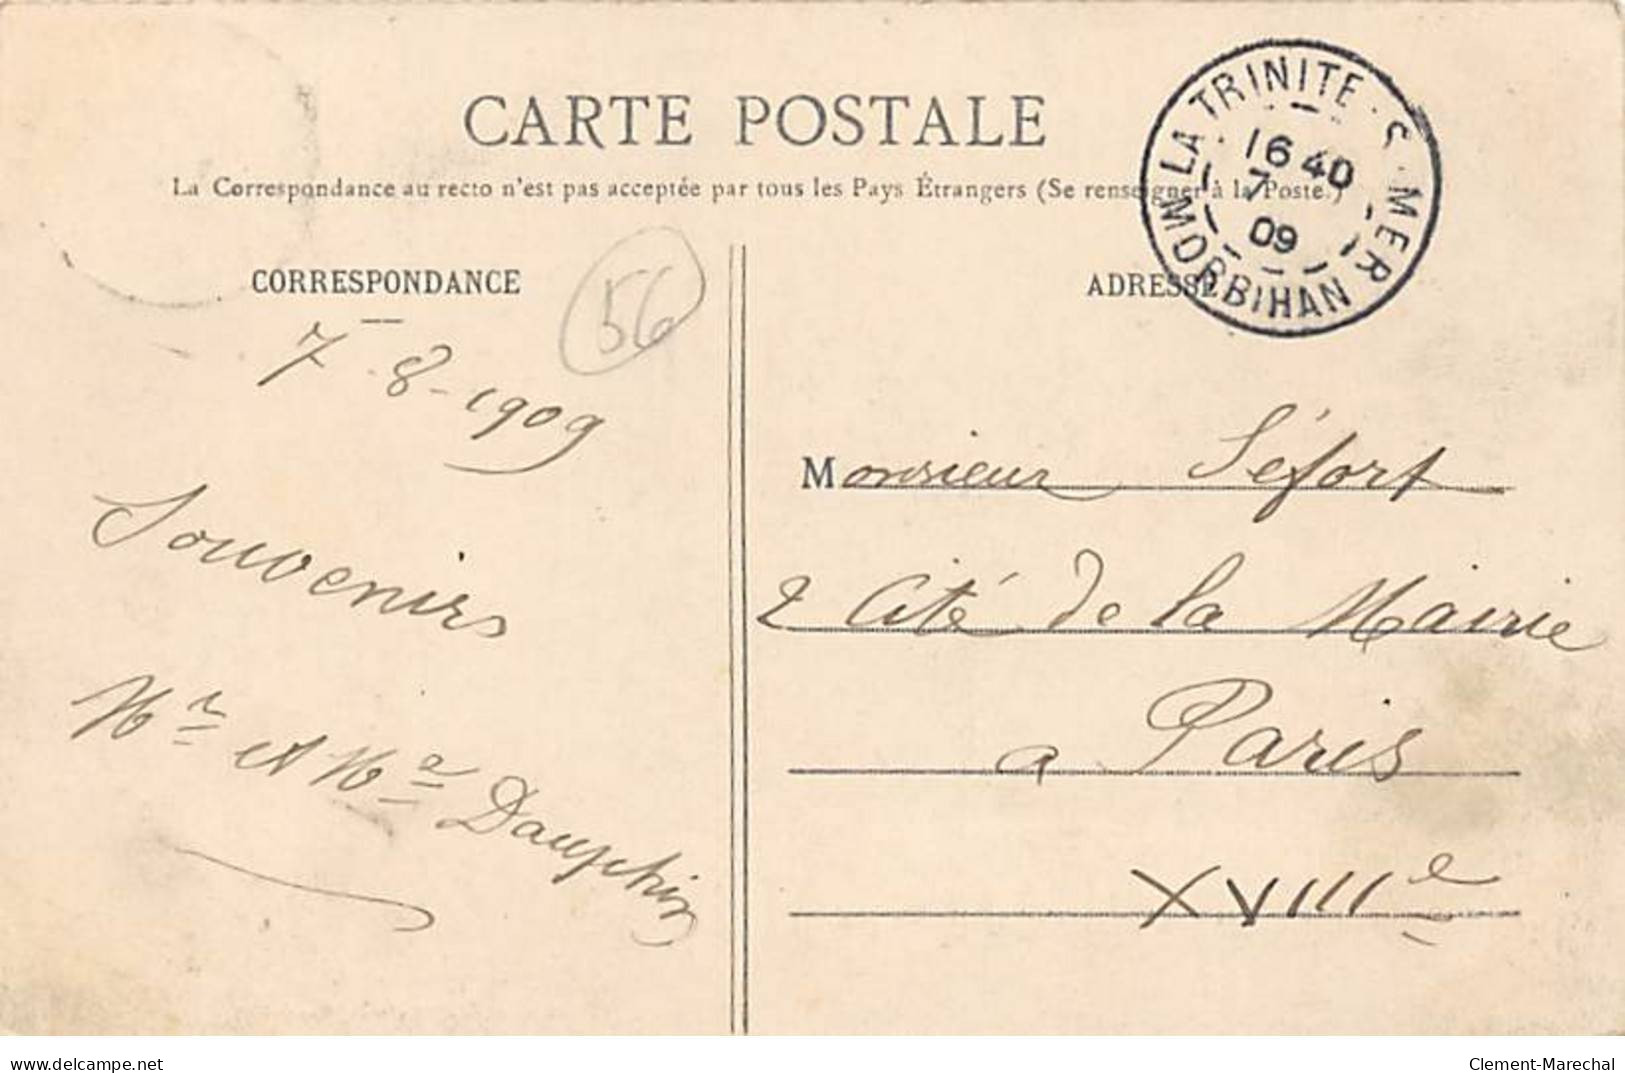 CARTE POSTALE
La Correspondance au recto n'est pas acceptée par tous les Pays Étrangers (Se renseigner à la Poste.)
LA TRINITE S. MER
16 40
7
09
MORBIHAN
CORRESPONDANCE
56
7-8-1909
Souvenirs
Mr et Me Dauphin
ADRESSE
Monsieur Séfort
2 Cité de la Mairie
a Paris
XVIIIe
delcampe.net
Clement-Marechal